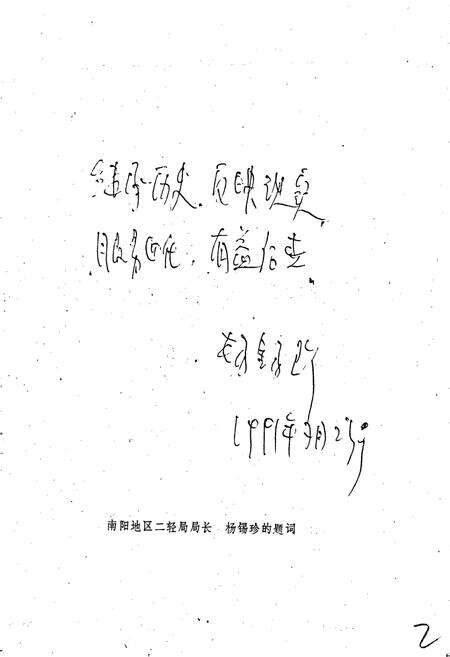 继承历史，反映现实，
服务四化，有益后世。
杨锡珍
1991年3月25日
南阳地区二轻局局长　杨锡珍的题词
2